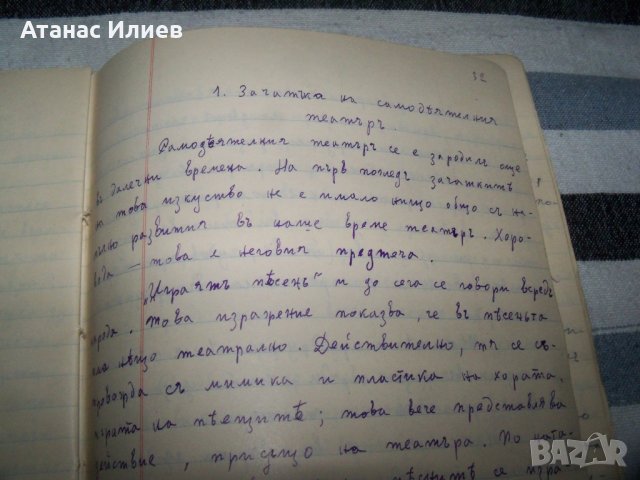 Атанас Илиев
32
1. Зачатъка на самодѣятелния
театъръ.
Самодѣятелния театъръ се е зародилъ още
въ далечни времена. На пръв погледъ зачаткитѣ
на това изкуство не е имало нищо общо съ на-
пълно развития въ наше време театъръ. Хоро-
вода — това е неговия предтеча.
"Играятъ пѣсень" и до сега се говори всредъ
народа. Това изражение показва, че въ пѣсеньта
има нѣщо театрално. Действително, тя се съ-
провожда съ мимика и пластика на хората.
играта на пѣещитѣ; това вече представлява
действие, присъщо на театъра. По ната-
се изра-
BAZAR
bg